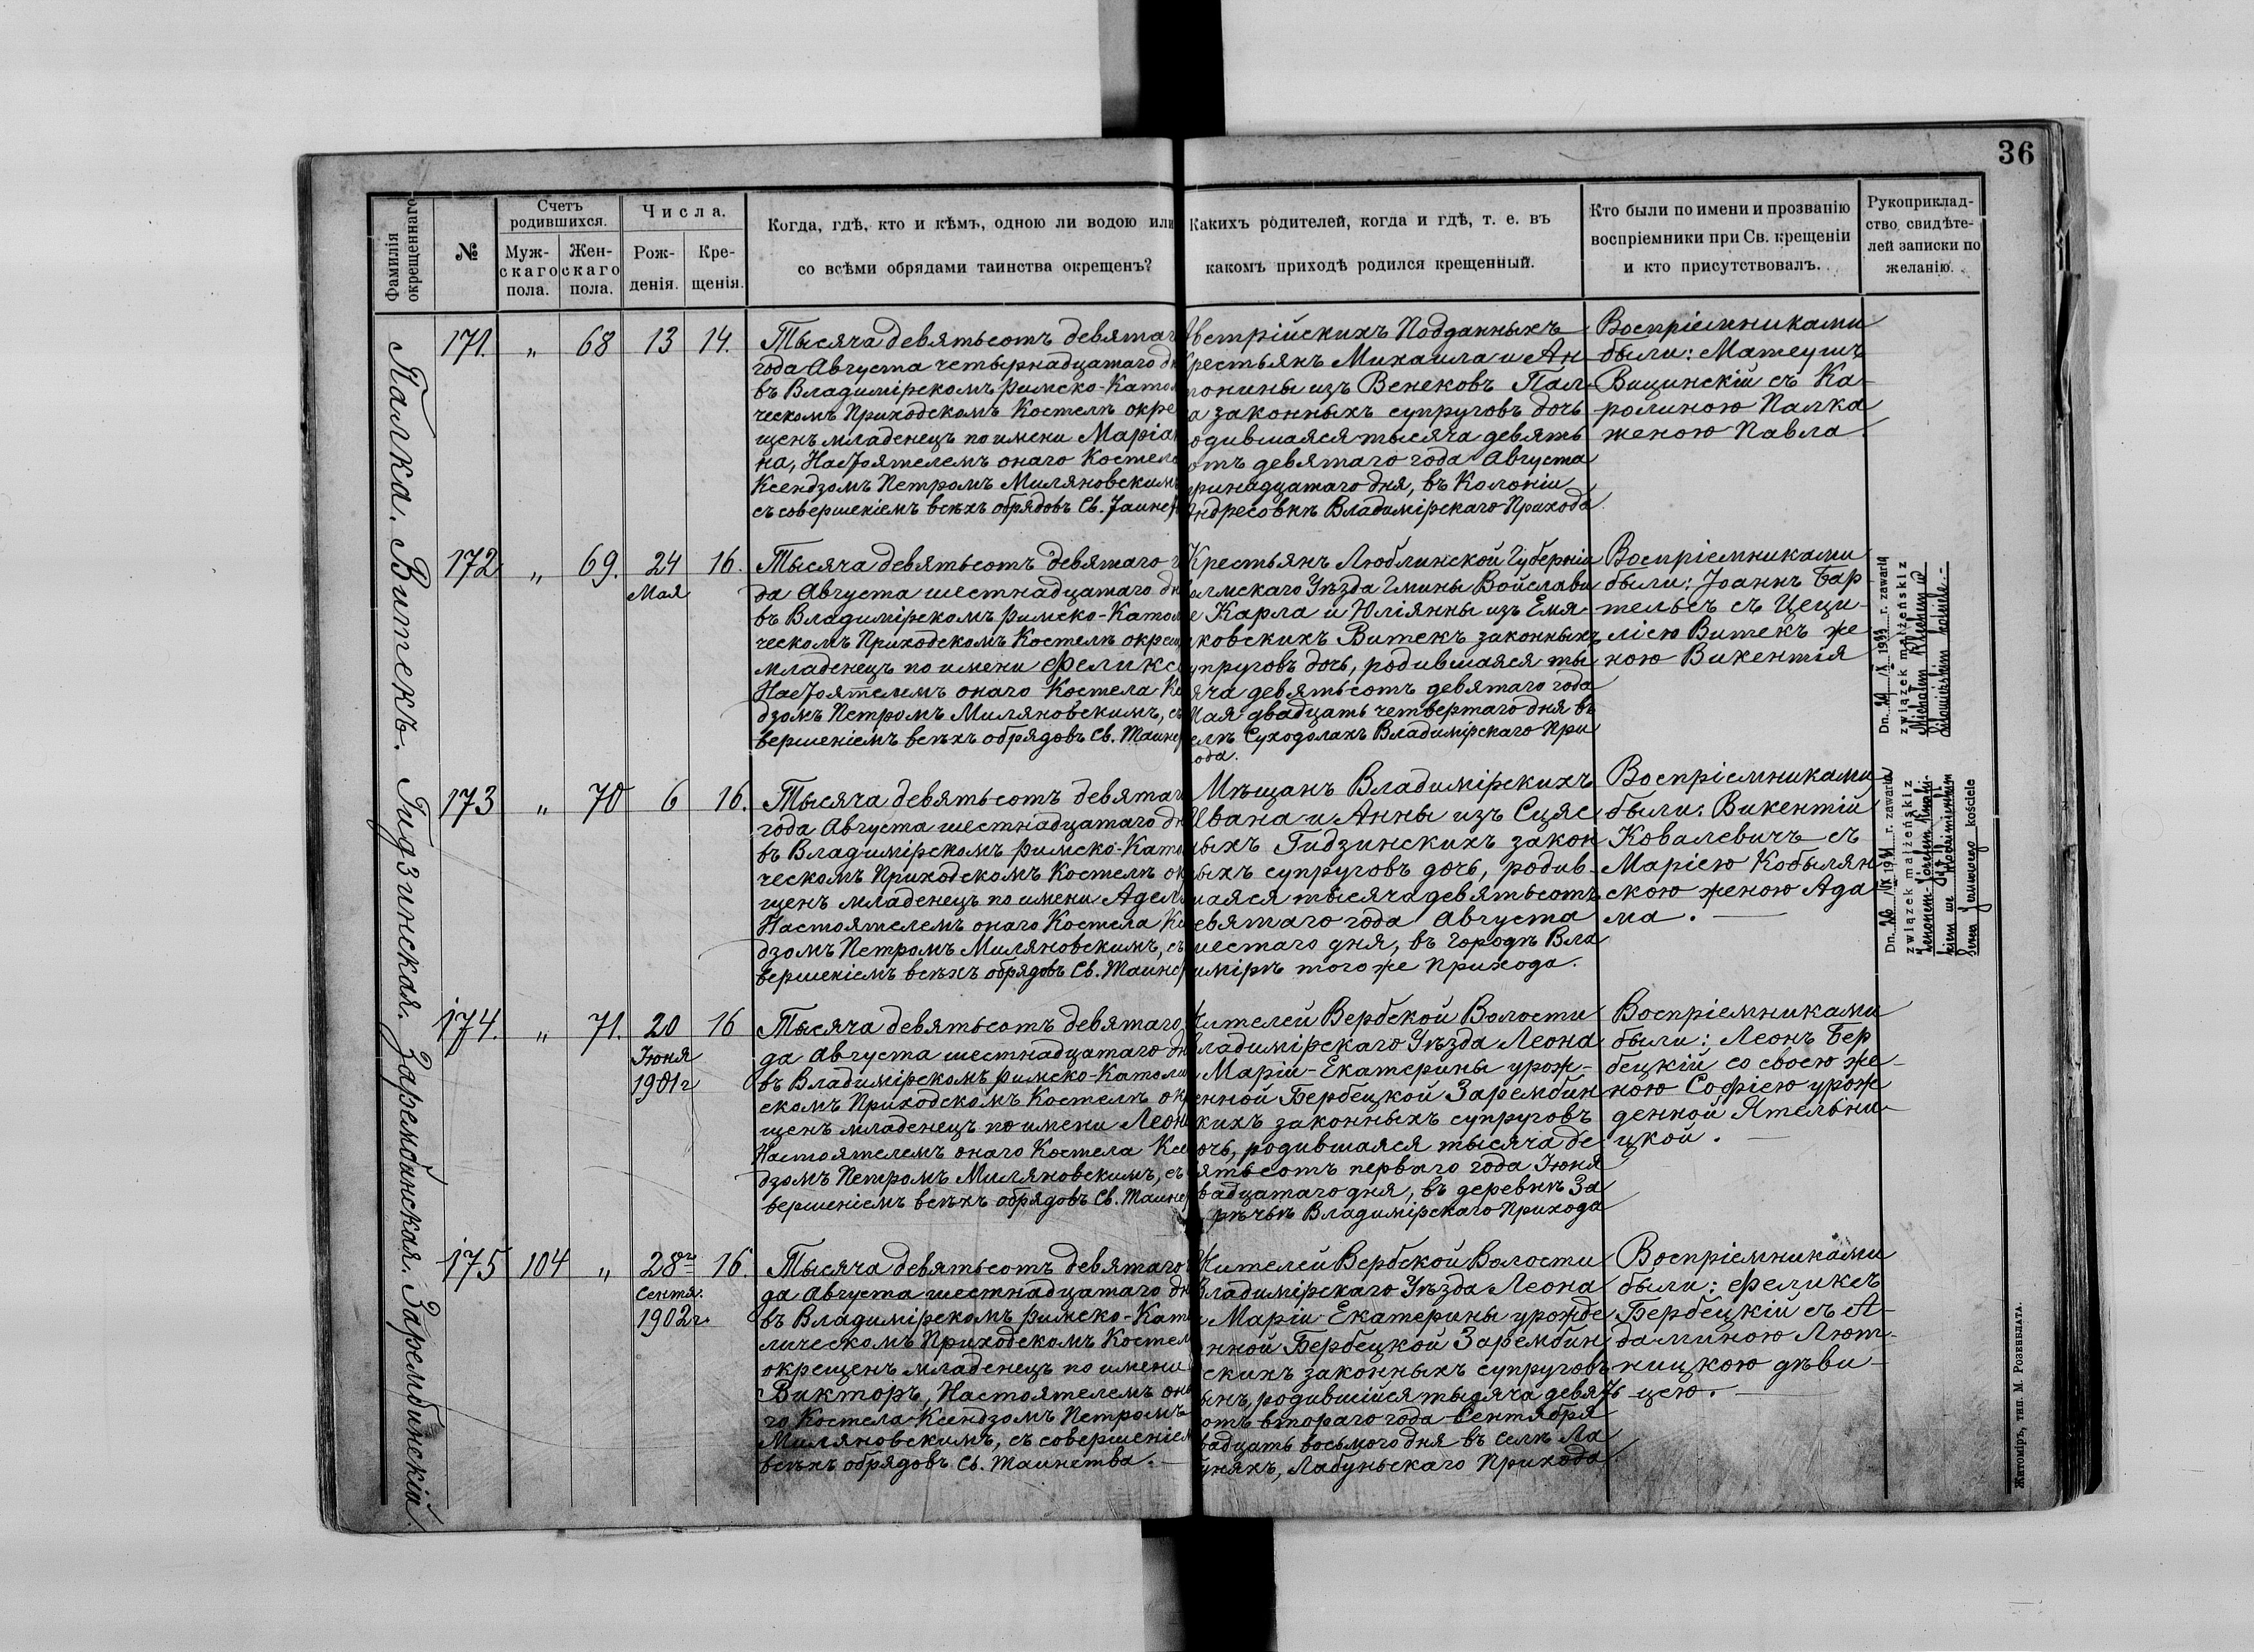 36
Фамилія окрещеннаго
№
Счетъ родившихся.
Муж-
скаго
пола.
Жен-
скаго
пола.
Числа.
Рож-
денія.
Кре-
щенія.
Когда, гдѣ, кто и кѣмъ, одною ли водою или
со всѣми обрядами таинства окрещенъ?
Какихъ родителей, когда и гдѣ, т. е. въ
какомъ приходѣ родился крещенный.
Кто были по имени и прозванію
воспріемники при Св. крещеніи
и кто присутствовалъ.
Рукоприклад-
ство свидѣте-
лей записки по
желанію.
Палка.
171. „ 68 13 14.
Тысяча девятьсотъ девятаг
года Августа четырнадцатаго дн
въ Владимірскомъ Римско-Като
ческомъ Приходскомъ Костелѣ окре
щенъ младенецъ по имени Маріа
на, Настоятелемъ онаго Костела
Ксендзомъ Петромъ Миляновскимъ
съ совершеніемъ всѣхъ обрядовъ Св. Таинст
Австрійскихъ Подданныхъ
Крестьянъ Михаила и Ан-
тонины изъ Венековъ Пал-
ка законныхъ супруговъ дочь
родившаяся тысяча девять
отъ девятаго года Августа
тринадцатаго дня, въ Колоніи
Андресовкѣ Владимірскаго Прихода
Воспріемниками
были: Матеушъ
Вицинскій съ Ка-
ролиною Палка
женою Павла.
Витекъ.
172 „ 69. 24 16.
Мая
Тысяча девятьсотъ девятаго г
да Августа шестнадцатаго дн
въ Владимірскомъ Римско-Като
ческомъ Приходскомъ Костелѣ окрещ
младенецъ по имени Фелик
Настоятелемъ онаго Костела К
дзомъ Петромъ Миляновскимъ, съ
вершеніемъ всѣхъ обрядовъ Св. Таинст
Крестьянъ Люблинской Губерніи
олмскаго Уѣзда Гмины Войслави
е Карла и Юліянны изъ Емя-
ковскихъ Витекъ законныхъ
упруговъ дочь, родившаяся ты
яча девятьсотъ девятаго года
Мая двадцать четвертаго дня въ
елѣ Суходолахъ Владимірскаго При
ода.
Воспріемниками
были: Іоаннъ Бар
тельсъ съ Цеци-
ліею Витекъ же
ною Викентія
Dn. IX 1933 r. zawarła
związek małżeński z
Michałem
kościele.-
Гидзинская.
173 „ 70 6 16.
Тысяча девятьсотъ девятаг
года Августа шестнадцатаго дн
въ Владимірскомъ Римско-Като
ческомъ Приходскомъ Костелѣ ок
щенъ младенецъ по имени Адел
Настоятелемъ онаго Костела К
дзомъ Петромъ Миляновскимъ, съ
вершеніемъ всѣхъ обрядовъ Св. Таинст
Мѣщанъ Владимірскихъ
Ивана и Анны изъ Сцяс
ныхъ Гидзинскихъ закон
ыхъ супруговъ дочь, родив-
шаяся тысяча девятьсотъ
евятаго года Августа
шестаго дня, въ Городѣ Вла
имірѣ того же Прихода.
Воспріемниками
были: Викентій
Ковалевичъ съ
Маріею Кобылян
скою женою Ада
ма.
Dn. 26 IX 1931 r. zawarła
związek małżeński z
kościele
Зарембинская.
174. „ 71. 20 16
Іюня
1901 г
Тысяча девятьсотъ девятаго
да Августа шестнадцатаго дн
въ Владимірскомъ Римско-Католи
скомъ Приходскомъ Костелѣ ок
щенъ младенецъ по имени Леон
Настоятелемъ онаго Костела Ксе
дзомъ Петромъ Миляновскимъ, съ
вершеніемъ всѣхъ обрядовъ Св. Таинст
Жителей Вербской Волости
Владимірскаго Уѣзда Леона
и Маріи-Екатерины урож-
енной Бербецкой Зарембин
кихъ законныхъ супруговъ
очь, родившаяся тысяча де
ятьсотъ перваго года Іюня
вадцатаго дня, въ деревнѣ За
рѣчьѣ Владимірскаго Прихода
Воспріемниками
были: Леонъ Бер
бецкій со своею же-
ною Софіею урож
денной Ятельни-
цкой.
Зарембинскій.
175 104 „ 28го 16.
Сентя.
1902 г.
Тысяча девятьсотъ девятаго
да Августа шестнадцатаго дн
въ Владимірскомъ Римско-Като
лическомъ Приходскомъ Костел
окрещенъ младенецъ по имени
Викторъ, Настоятелемъ она
го Костела Ксендзомъ Петромъ
Миляновскимъ, съ совершеніем
всѣхъ обрядовъ Св. Таинства.
Жителей Вербской Волости
Владимірскаго Уѣзда Леона
и Маріи Екатерины урожде
нной Бербецкой Зарембин
скихъ законныхъ супруговъ
ынъ, родившійся тысяча девять
отъ втораго года Сентября
вадцать восьмого дня въ селѣ Ла
уняхъ, Лабуньскаго Прихода
Воспріемниками
были: Феликсъ
Бербецкій съ А-
даминою Лют-
ницкою дѣви-
цею.
Житоміръ, тип. М. Розенблата.